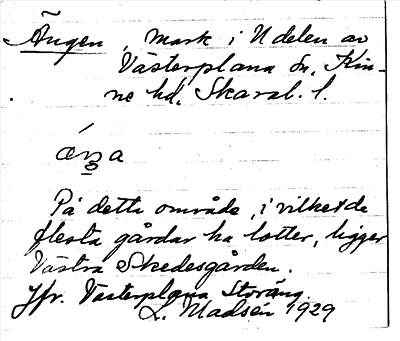 Ängen, mark i N delen av
Västerplana sn, Kin-
ne hd, Skarab. l.
ä́ŋa
På detta område, i vilket de
flesta gårdar ha lotter, ligger
Västra Skedesgården.
Jfr. Västerplana Storäng.
L. Madsén 1929